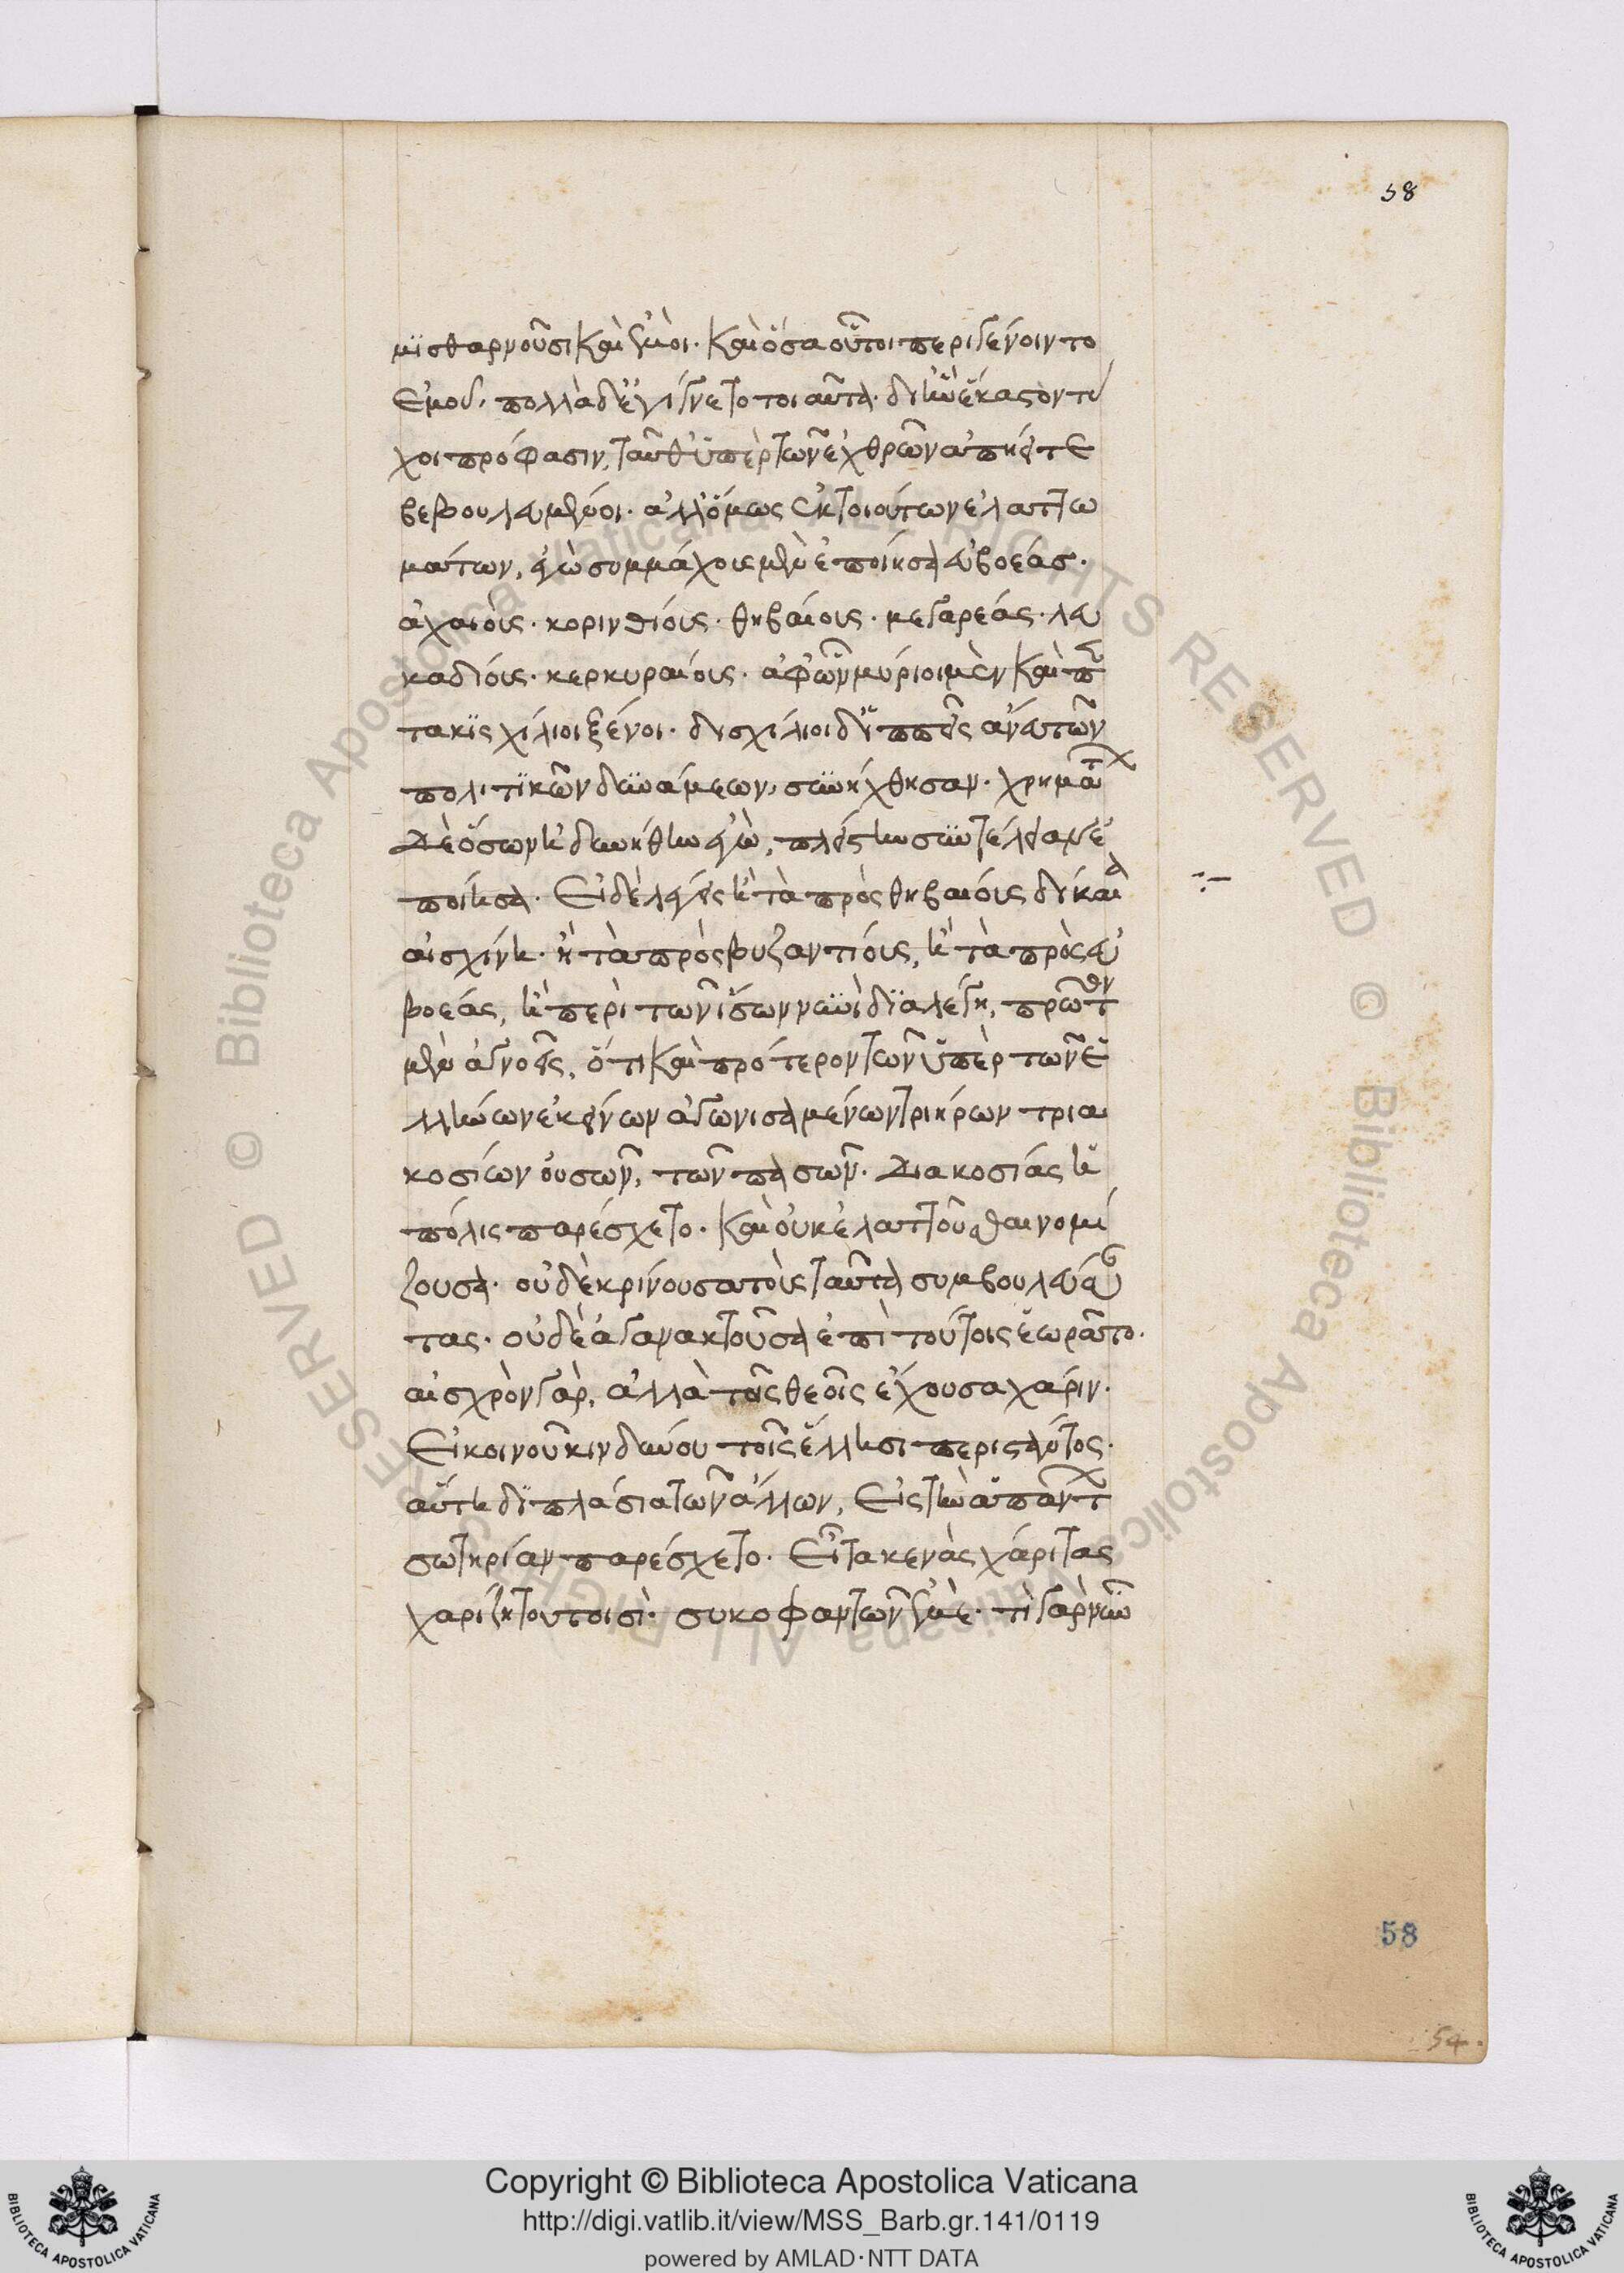 58
μϊσθαρνοῦσι καὶ ἐμοὶ· καὶ ὅσα οὗτοι περιγένοιντο
ἐμοῦ. πολλὰ δ' ἐγίγνετο τοιαῦτα· δι' ἣν ἕκαστον τύ
χοι πρόφασιν, ταῦθ' ὑπὲρ τῶν ἐχθρῶν ἀπήειτε
βεβουλευμένοι. ἀλλ' ὅμως ἐκ τοιούτων ἐλαττω
μάτων, ἐγὼ συμμάχους μὲν ἐποίησα εὐβοέας·
ἀχαιούς· κορινθίους· θηβαίους· μεγαρέας· λευ
καδίους· κερκυραίους· ἀφ' ὧν μύριοι μὲν καὶ πεν
τακϊς χίλιοι ξένοι· δισχίλιοι δ' ἱππεῖς ἄνευ τῶν
πολιτϊκῶν δυνάμεων, συνήχθησαν· χρημάτων
δὲ ὅσων ἐδυνήθην ἐγὼ, πλείστην συντέλειαν ἐ
ποίησα. Εἰ δὲ λέγεις ἢ τὰ πρὸς θηβαίους δίκαια
αἰσχίνη· ἢ τὰ πρὸς βυζαντίους, ἢ τὰ πρὸς εὐ
βοέας, ἢ περὶ τῶν ἴσων νυνὶ δϊαλέγη, πρῶτον
μὲν ἀγνοεῖς, ὅτι καὶ πρότερον τῶν ὑπὲρ τῶν ἑ
λλήνων ἐκείνων ἀγωνισαμένων τριήρων τρια
κοσίων οὐσῶν, τῶν πασῶν· διακοσίας ἡ
πόλις παρέσχετο· καὶ οὐκ ἐλαττοῦσθαι νομί
ζουσα· οὐδὲ κρίνουσα τοὺς ταῦτα συμβουλεύσαν
τας· οὐδὲ ἀγανακτοῦσα ἐπὶ τούτοις ἑωρᾶτο·
αἰσχρὸν γὰρ, ἀλλὰ τοῖς θεοῖς ἔχουσα χάριν·
Εἰ κοινοῦ κινδύνου τοῖς ἕλλησι περιστάντος·
αὕτη δϊπλάσια τῶν ἄλλων, εἰς τὴν ἁπάντων
σωτηρίαν παρέσχετο. Εἶτα κενὰς χάριτας
χαρίζῃ τουτοισὶ· συκοφαντῶν ἐμὲ· τί γὰρ νῦν
58
54.
© Biblioteca Apostolica Vaticana ALL RIGHTS RESERVED
© Biblioteca Apostolica Vaticana ALL RIGHTS RESERVED
Copyright © Biblioteca Apostolica Vaticana
http://digi.vatlib.it/view/MSS_Barb.gr.141/0119
powered by AMLAD·NTT DATA
BIBLIOTECA APOSTOLICA VATICANA
BIBLIOTECA APOSTOLICA VATICANA